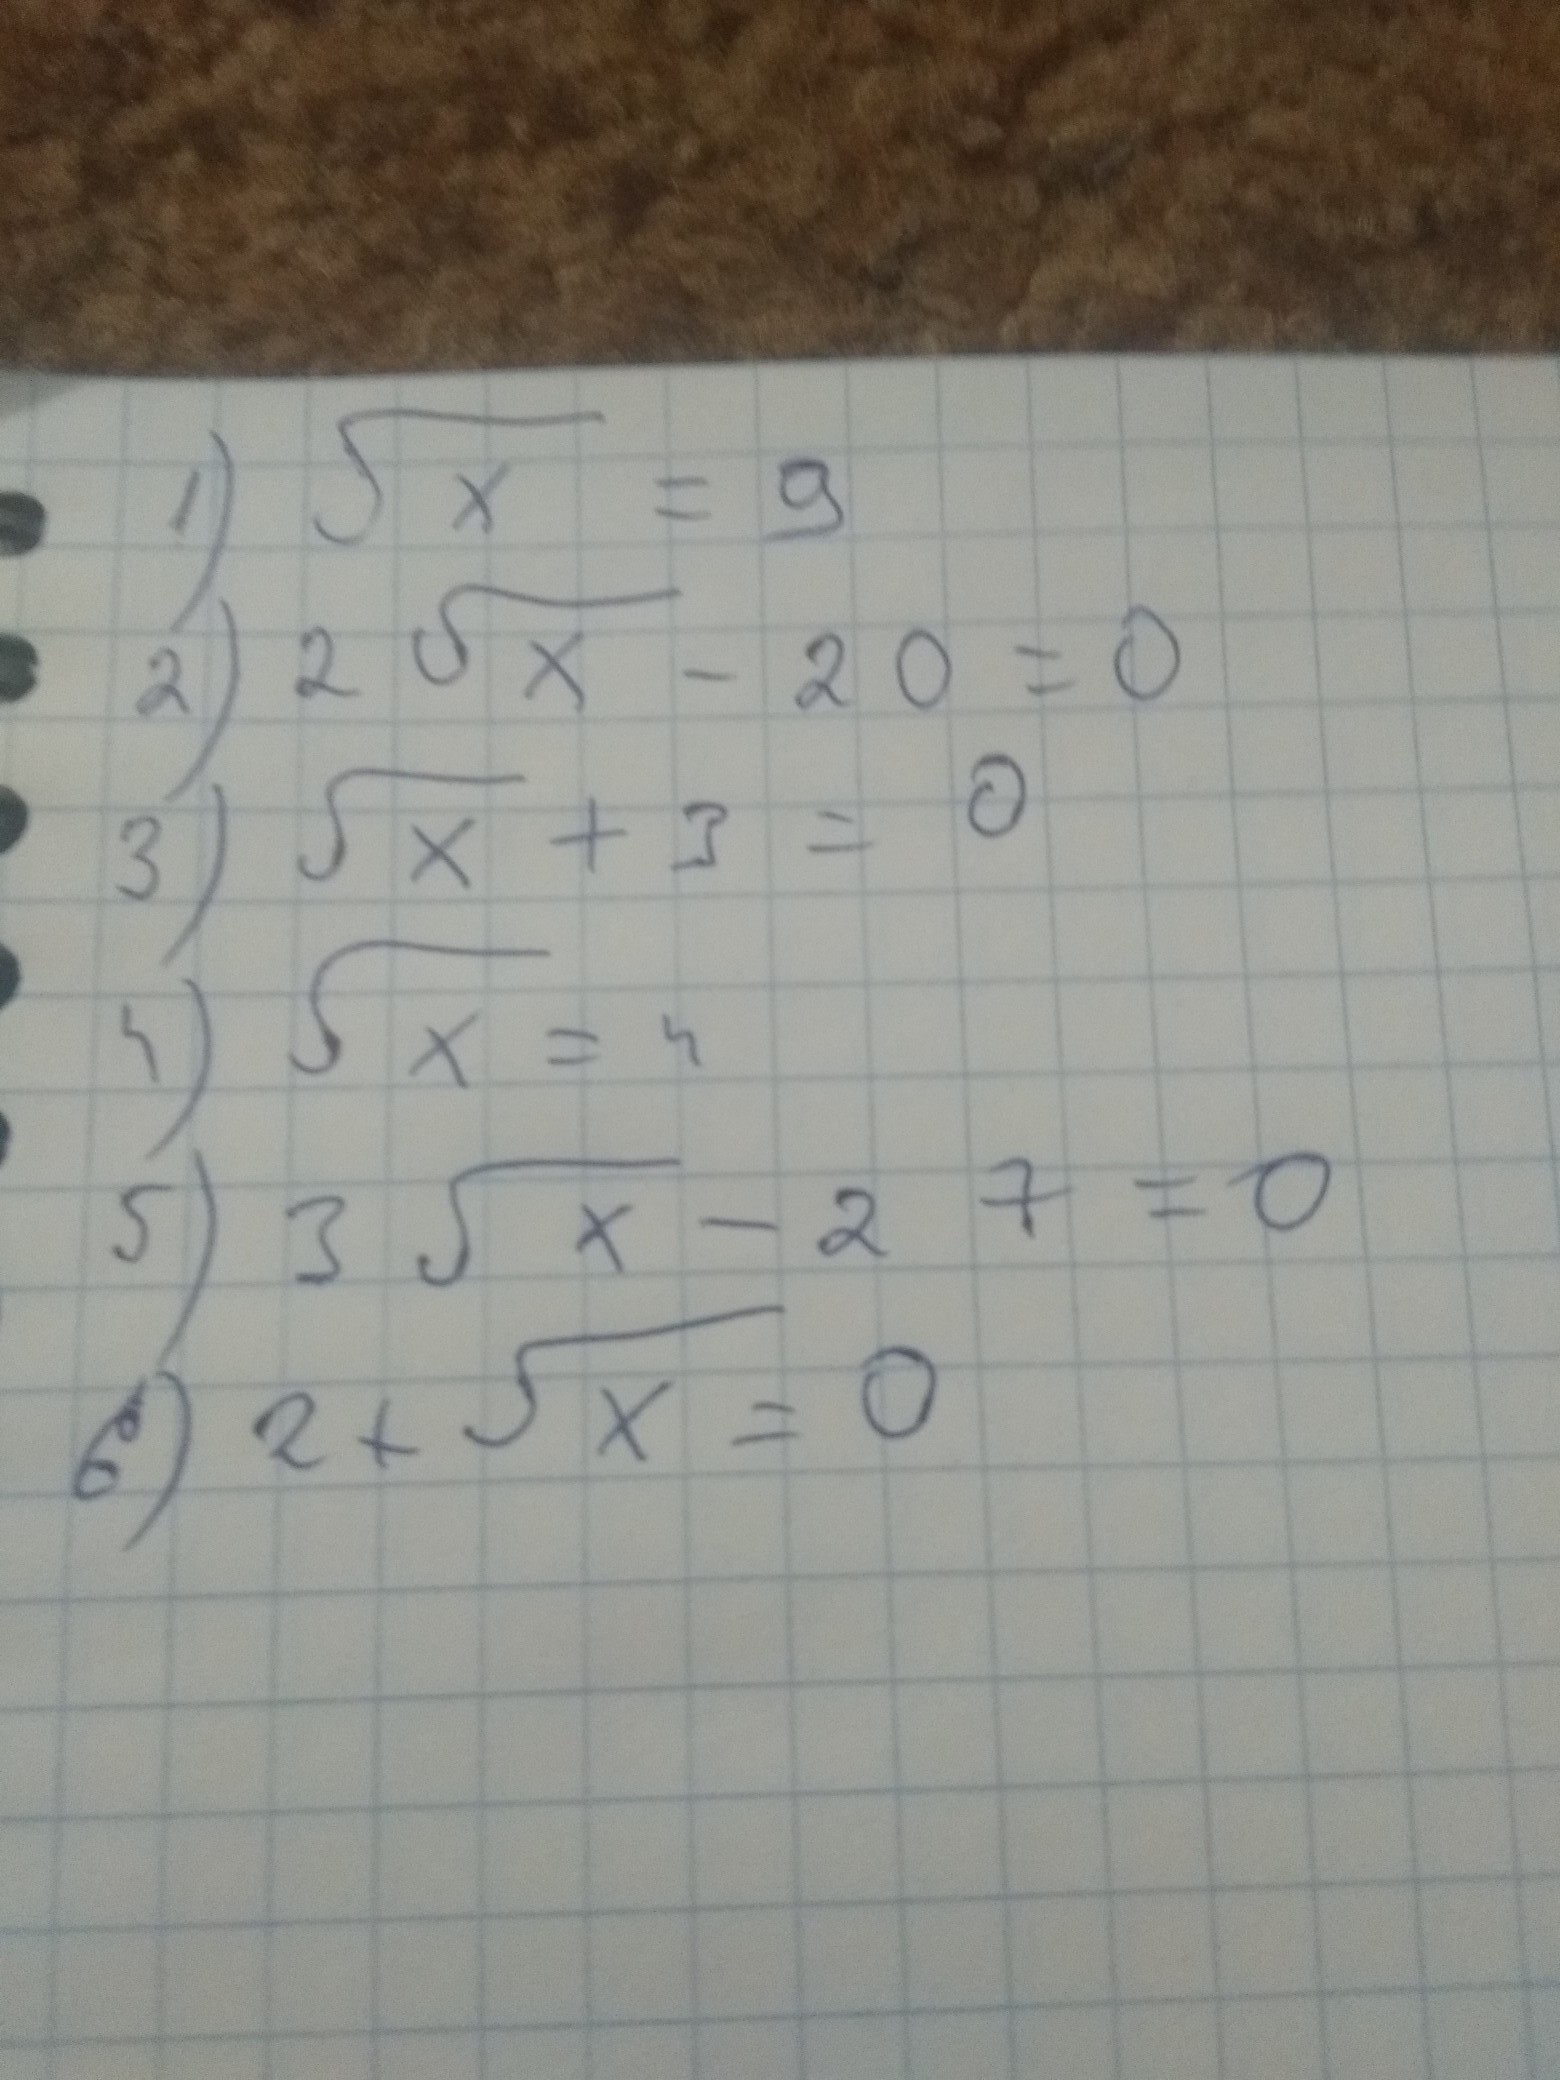 1) √x = 9
2) 2√x - 20 = 0
3) √x + 3 = 0
4) √x = 4
5) 3√x - 27 = 0
6) 2 + √x = 0